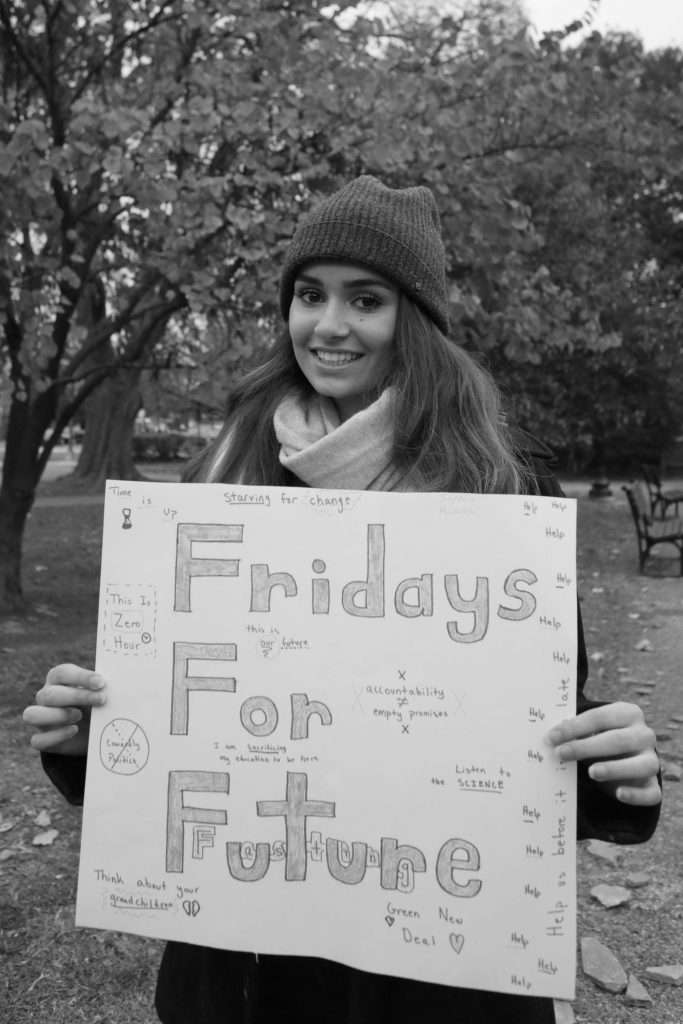 Time is up
Starving for change
Help
Help
Help
Help
Help
Help
Help
Help
Help
Help
Help
Help
Help
Help
Fridays
This Is
Zero
Hour
this is
our future
For
accountability
≠
empty promises
Cowardly
Politics
I am sacrificing
my education to be here
Listen to
the SCIENCE
Future
Fasting
Think about your
grandchildren
Green New
Deal
Help us before it is late